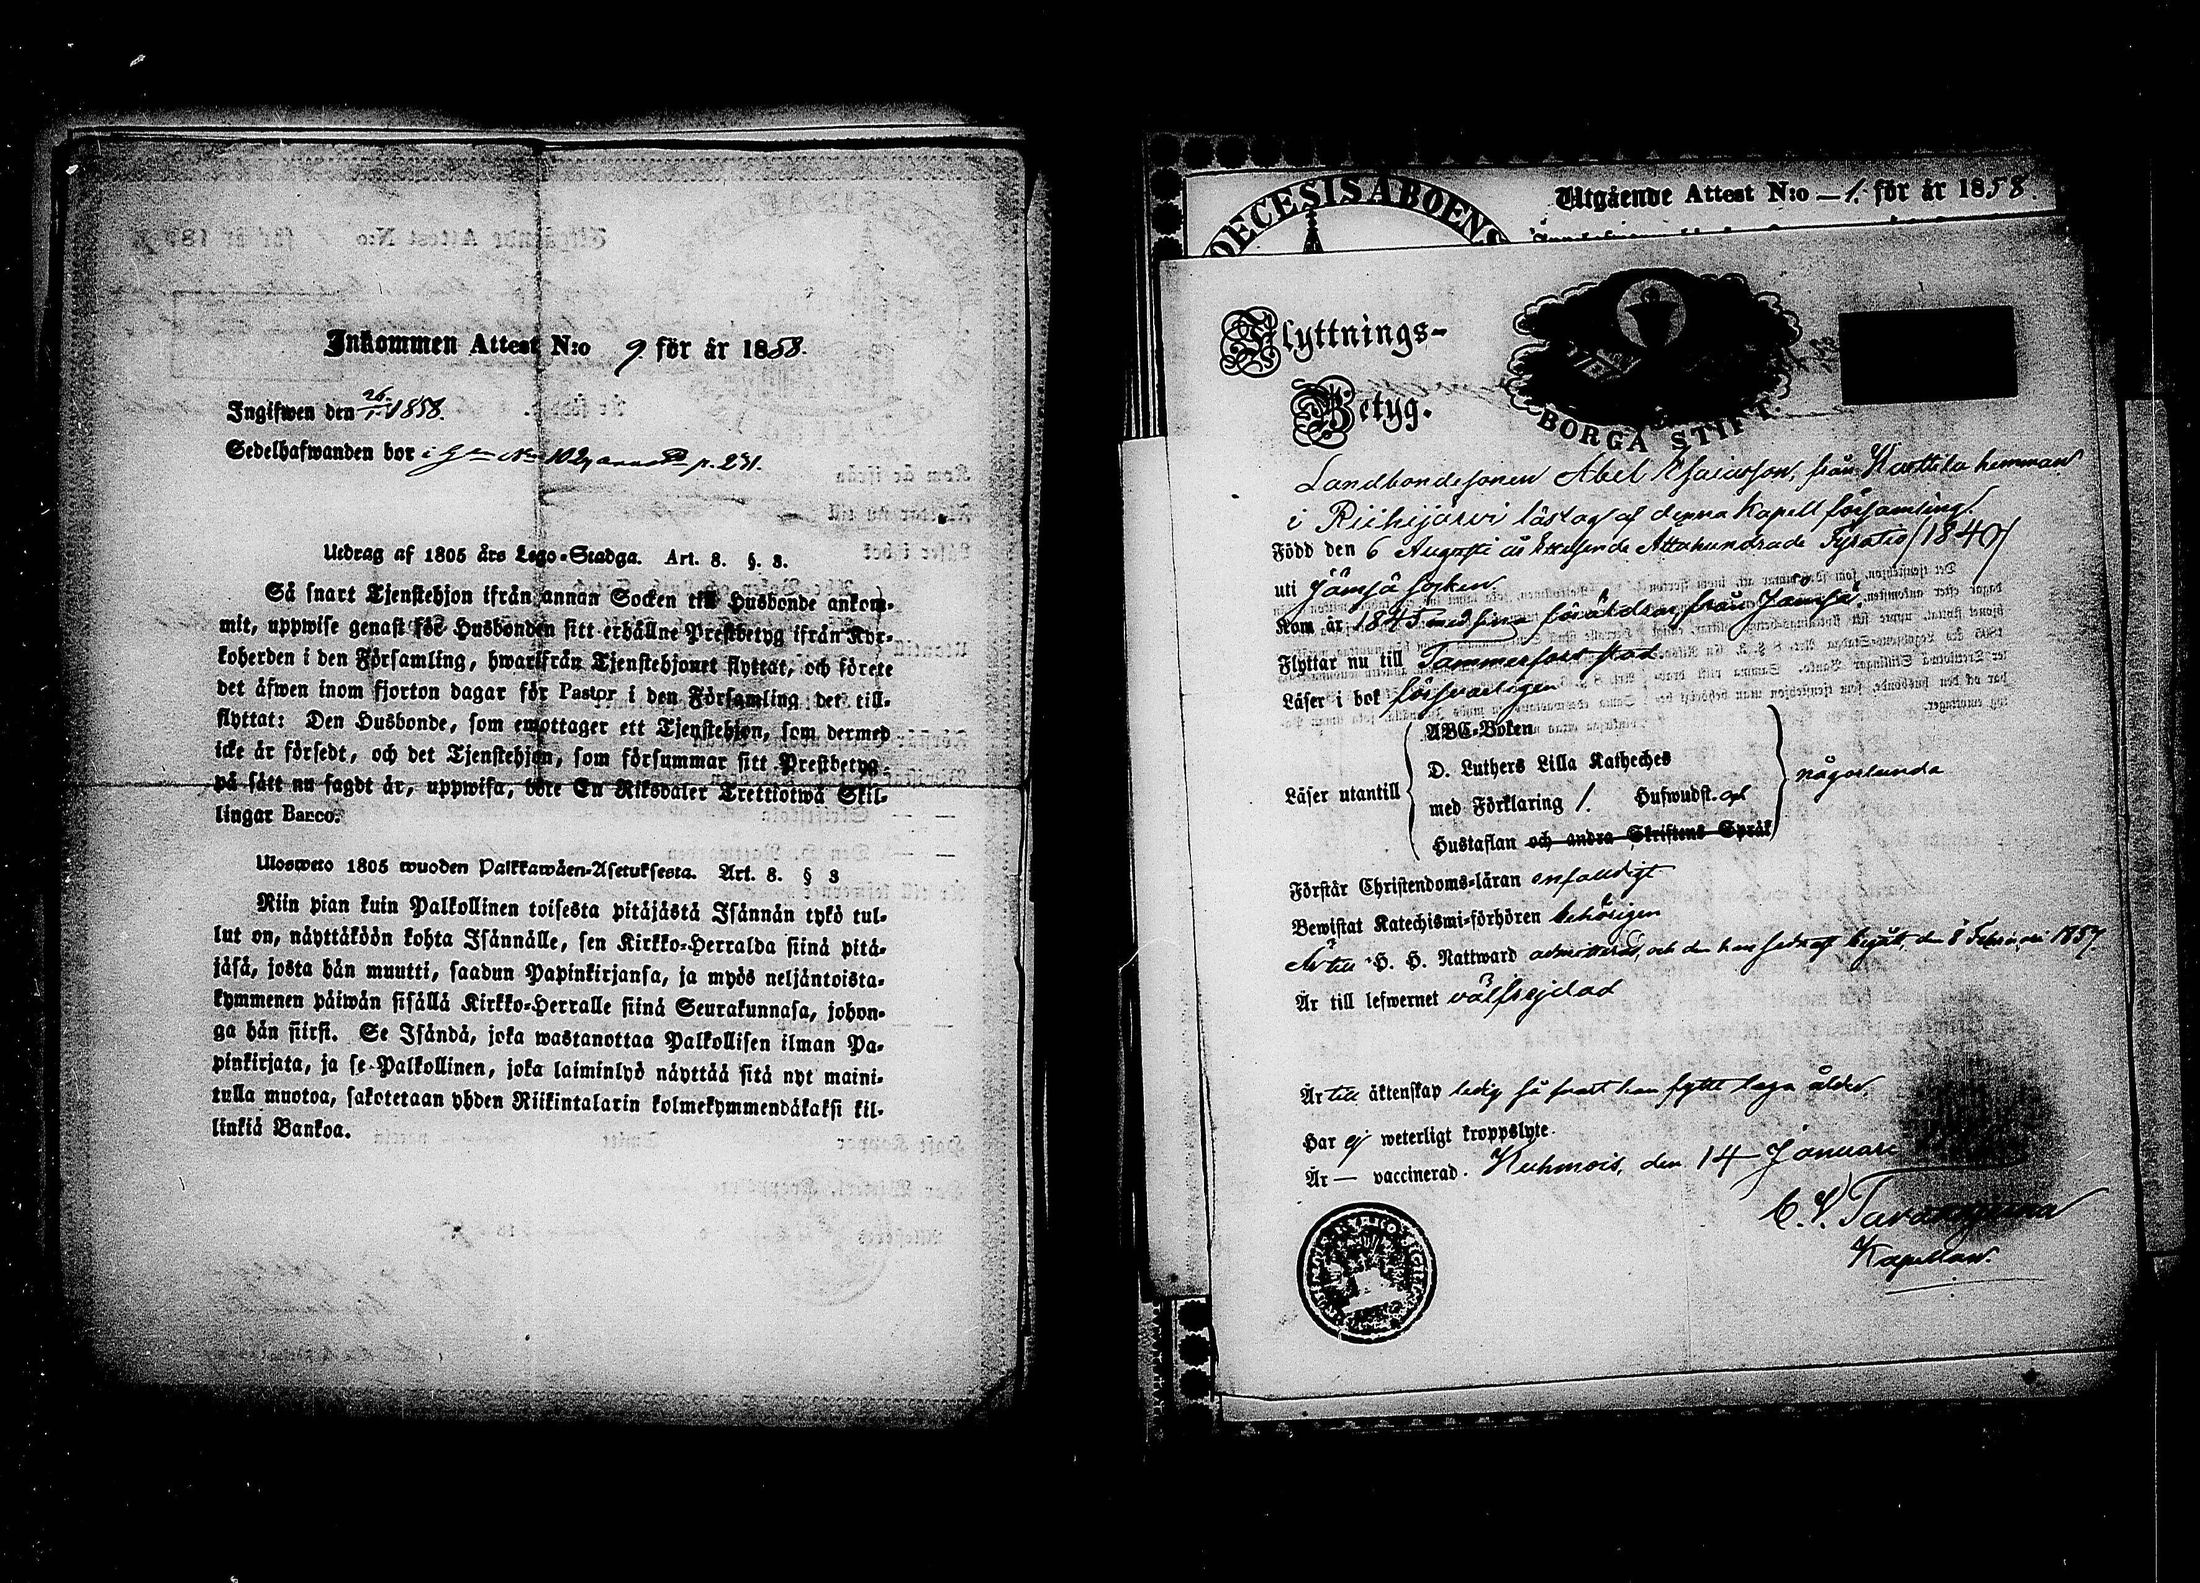 Inkommen Attest N:o 9 för år 1858.
Ingifwen den 26/1 1858.
Sedelhafwanden bor i p. 231.
Utdrag af 1805 års Lego-Stadga. Art. 8. §. 3.
Så snart Tjenstehjon ifrån annan Socken till Husbonde ankom-
mit, uppwise genast för Husbonden sitt erhållne Prestbetyg ifrån Kyr-
koherden i den Församling, hwarifrån Tjenstehjonet flyttat, och förete
det äfwen inom fjorton dagar för Pastor i den Församling det till-
flyttat: Den Husbonde, som emottager ett Tjenstehjon, som dermed
icke är försedt, och det Tjenstehjon, som försummar sitt Prestbetyg
på sätt nu sagdt är, uppwisa, böte En Riksdaler Trettiotwå Skil-
lingar Banco.
Ulosweto 1805 wuoden Palkkawäen-Asetuksesta. Art. 8. § 3
Niin pian kuin Palkollinen toisesta pitäjästä Isännän tykö tul-
lut on, näyttäköön kohta Isännälle, sen Kirkko-Herralda siinä pitä-
jäsä, josta hän muutti, saadun Papinkirjansa, ja myös neljäntoista-
kymmenen päiwän sisällä Kirkko-Herralle siinä Seurakunnasa, johon-
ga hän siirsi. Se Isändä, joka wastanottaa Palkollisen ilman Pa-
pinkirjata, ja se Palkollinen, joka laiminlyö näyttää sitä nyt maini-
tulla muotoa, sakotetaan yhden Riikintalarin kolmekymmendäkaksi kil-
linkiä Bankoa.
DECESIS ABOENS
Utgående Attest N:o 1. för år 1858.
Flyttnings-
Betyg.
BORGÅ STIFT.
Landbondesonen Abel Esaiasson, från Kasttila hemman
i Riihijärvi låstag af denna Kapell församling.
Född den 6 Augusti år Ettusende Attahundrade Fyratio (1840)
uti Jämsä socken
Kom år 1845 med sina föräldrar från Jämsä.
Flyttar nu till Tammerfors stad
Läser i bok försvarligen
ABC-Boken
D. Luthers Lilla Katheches
Läser utantill med Förklaring 1. Hufwudst. och någorlunda
Hustaflan och andra Skriftens Språk
Förstår Christendoms-läran enfaldigt
Bewistat Katechismi-förhören behörigen
Är till H. H. Nattward admitterad, och den han sednast begått den 8 Februari 1857
Är till lefwernet välfrejdad
Är till äktenskap ledig så snart han fyllt laga ålder.
Har ej weterligt kroppslyte.
Är — vaccinerad. Kuhmois, den 14 Januari
C. V. Tavastjerna
Kapellan.